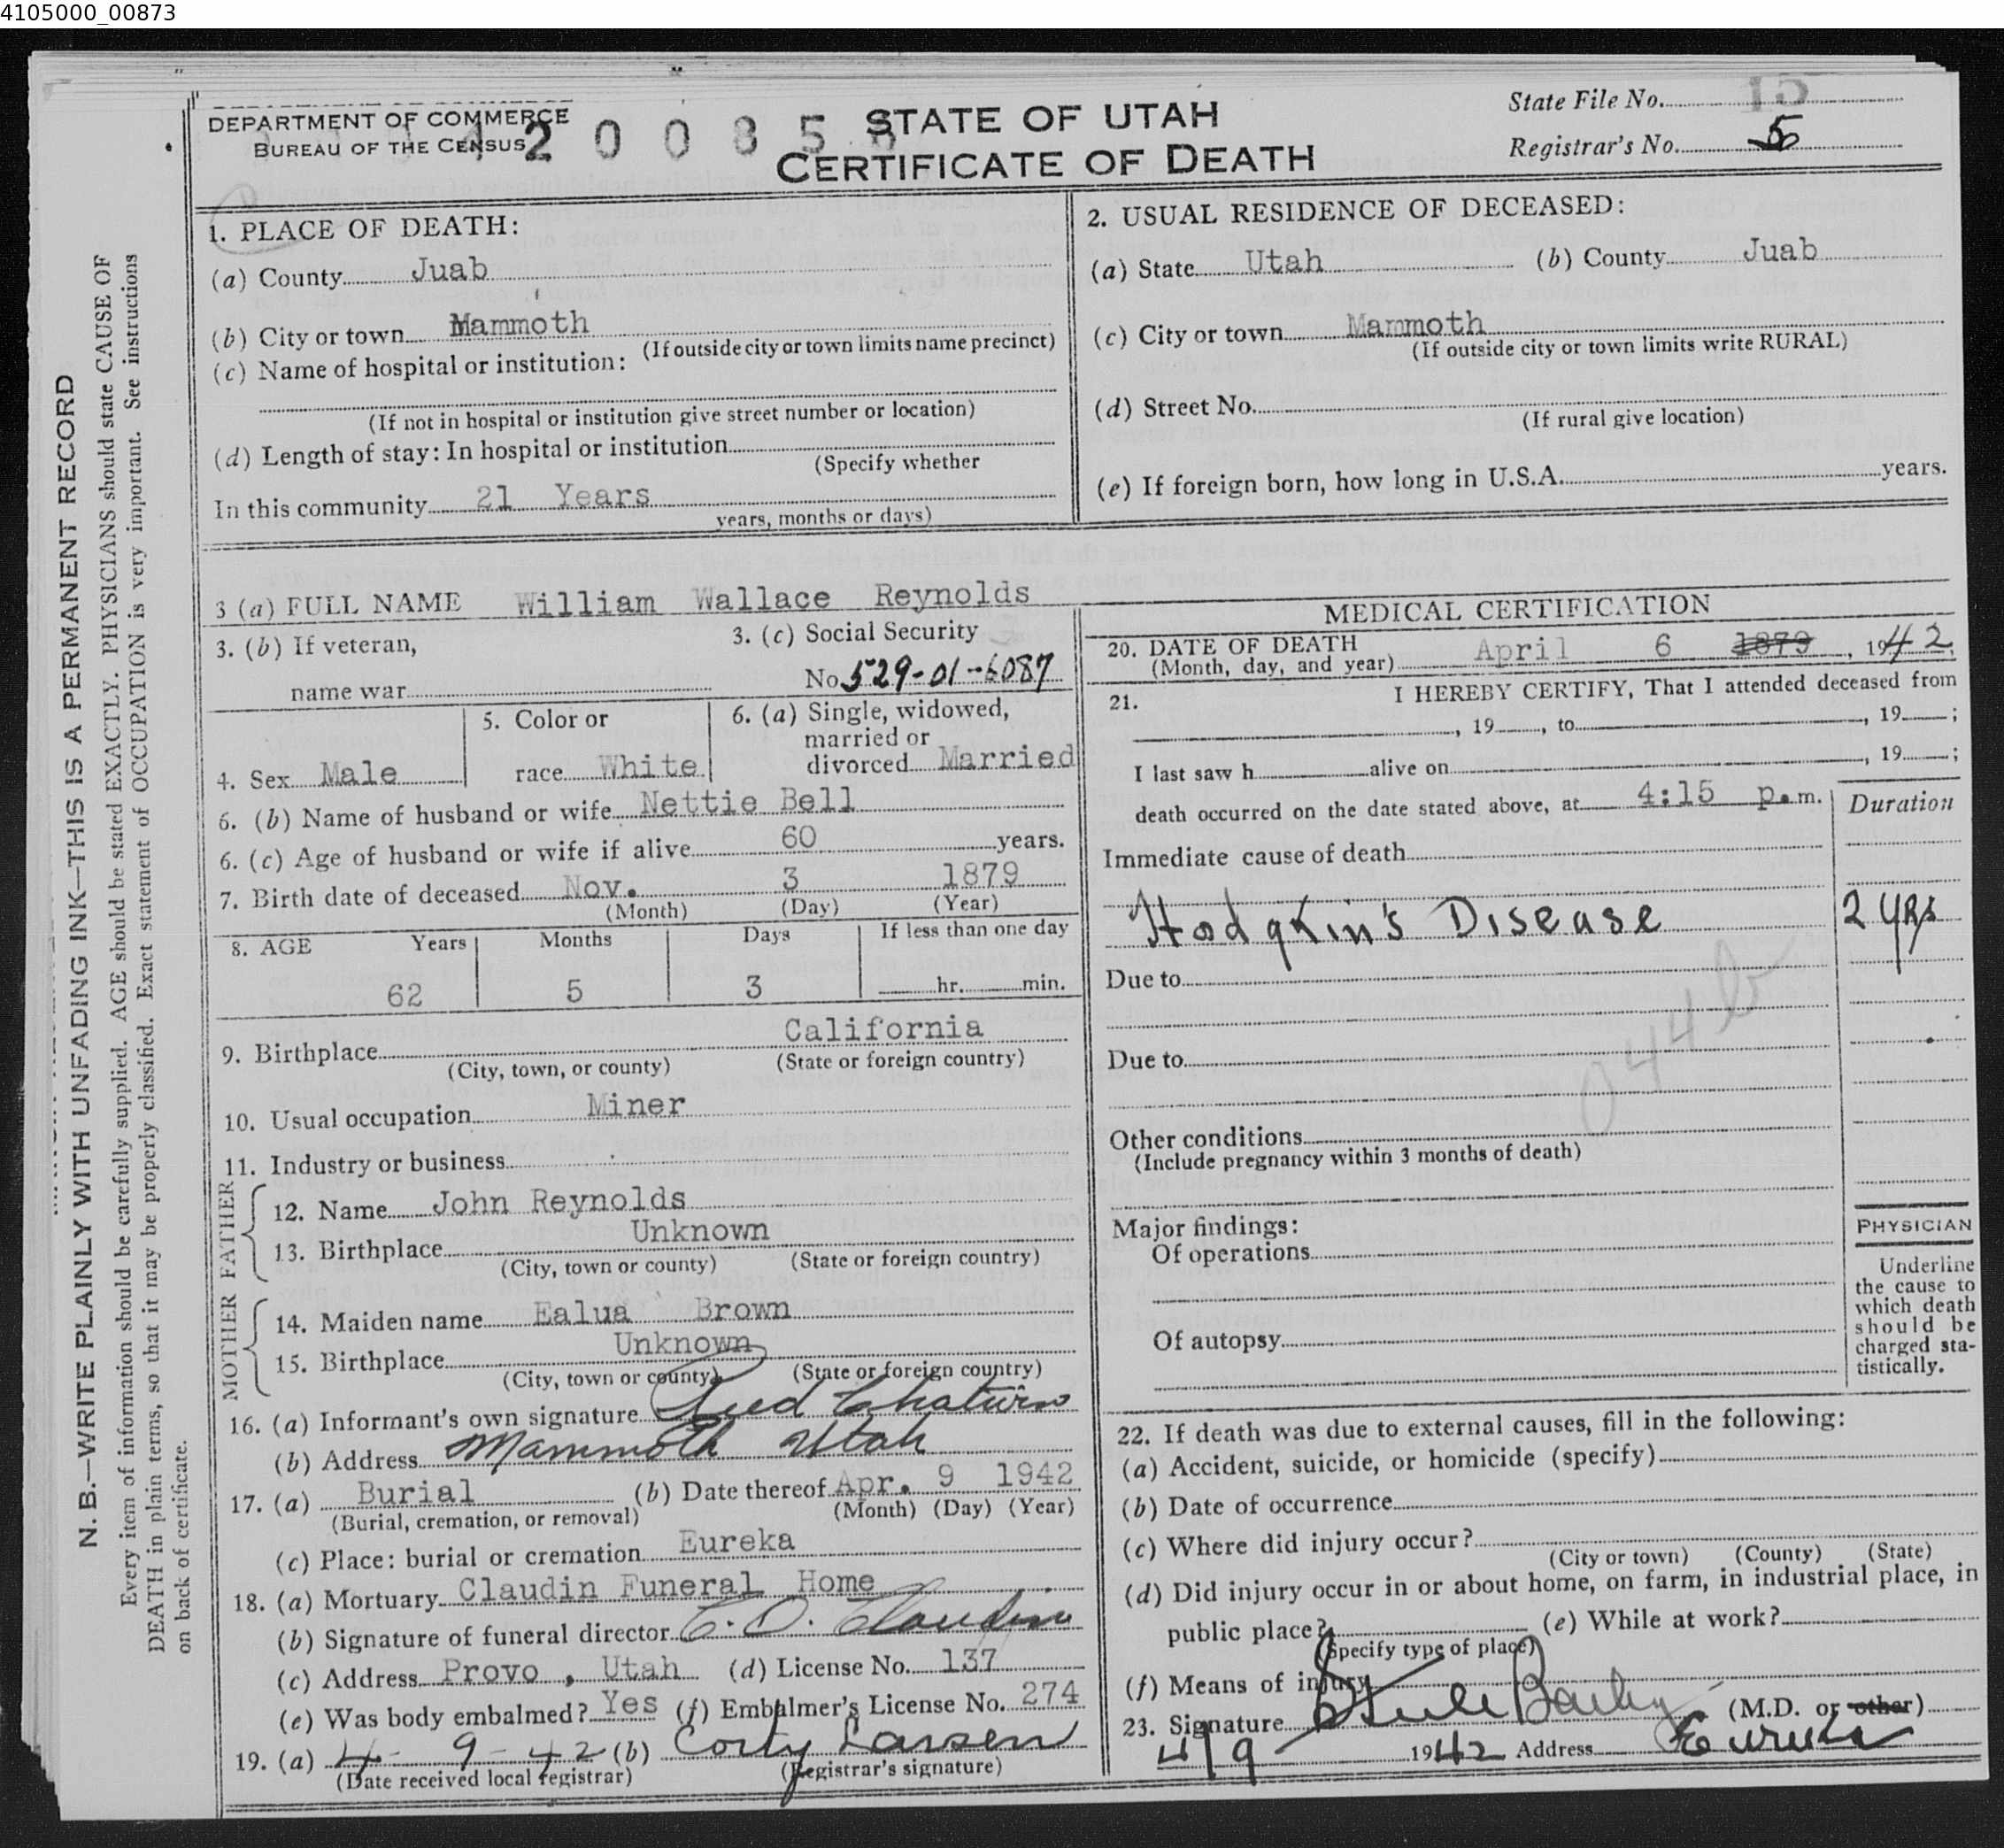 4105000_00873
DEPARTMENT OF COMMERCE
BUREAU OF THE CENSUS
4 2 0 0 8 5
STATE OF UTAH
CERTIFICATE OF DEATH
State File No. 15
Registrar's No. 5
1. PLACE OF DEATH:
(a) County Juab
(b) City or town Mammoth
(If outside city or town limits name precinct)
(c) Name of hospital or institution:
(If not in hospital or institution give street number or location)
(d) Length of stay: In hospital or institution
(Specify whether
In this community 21 Years
years, months or days)
2. USUAL RESIDENCE OF DECEASED:
(a) State Utah (b) County Juab
(c) City or town Mammoth
(If outside city or town limits write RURAL)
(d) Street No.
(If rural give location)
(e) If foreign born, how long in U.S.A. years.
3 (a) FULL NAME William Wallace Reynolds
3. (b) If veteran,
name war
3. (c) Social Security
No. 529-01-6087
4. Sex Male
5. Color or
race White
6. (a) Single, widowed,
married or
divorced Married
6. (b) Name of husband or wife Nettie Bell
6. (c) Age of husband or wife if alive 60 years.
7. Birth date of deceased Nov. 3 1879
(Month) (Day) (Year)
8. AGE Years Months Days If less than one day
62 5 3 hr. min.
9. Birthplace California
(City, town, or county) (State or foreign country)
10. Usual occupation Miner
11. Industry or business
FATHER
12. Name John Reynolds
13. Birthplace Unknown
(City, town or county) (State or foreign country)
MOTHER
14. Maiden name Ealua Brown
15. Birthplace Unknown
(City, town or county) (State or foreign country)
16. (a) Informant's own signature Reed Chatwin
(b) Address Mammoth Utah
17. (a) Burial (b) Date thereof Apr. 9 1942
(Burial, cremation, or removal) (Month) (Day) (Year)
(c) Place: burial or cremation Eureka
18. (a) Mortuary Claudin Funeral Home
(b) Signature of funeral director C. O. Claudin
(c) Address Provo, Utah (d) License No. 137
(e) Was body embalmed? Yes (f) Embalmer's License No. 274
19. (a) 4-9-42 (b) Larsen
(Date received local registrar) (Registrar's signature)
MEDICAL CERTIFICATION
20. DATE OF DEATH
(Month, day, and year) April 6 1879, 1942.
21. I HEREBY CERTIFY, That I attended deceased from
, 19 , to , 19 ;
I last saw h alive on , 19 ;
death occurred on the date stated above, at 4:15 p.m.
Duration
Immediate cause of death
Hodgkin's Disease 2 yrs
Due to
Due to
044b
Other conditions
(Include pregnancy within 3 months of death)
Major findings:
Of operations
Of autopsy
PHYSICIAN
Underline
the cause to
which death
should be
charged sta-
tistically.
22. If death was due to external causes, fill in the following:
(a) Accident, suicide, or homicide (specify)
(b) Date of occurrence
(c) Where did injury occur?
(City or town) (County) (State)
(d) Did injury occur in or about home, on farm, in industrial place, in
public place? (e) While at work?
(Specify type of place)
(f) Means of injury
23. Signature Steele Bailey (M.D. or other)
4/9 1942 Address Eureka
N. B.—WRITE PLAINLY WITH UNFADING INK—THIS IS A PERMANENT RECORD
Every item of information should be carefully supplied. AGE should be stated EXACTLY. PHYSICIANS should state CAUSE OF
DEATH in plain terms, so that it may be properly classified. Exact statement of OCCUPATION is very important. See instructions
on back of certificate.